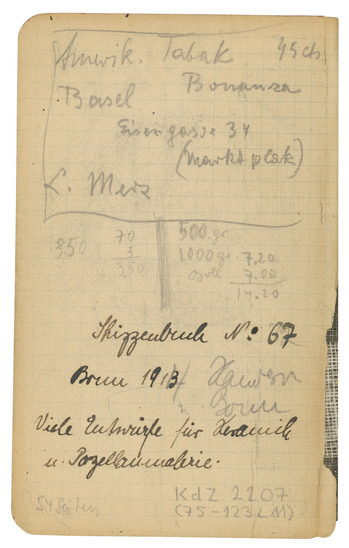 Amerik. Tabak 45 cts.
Bonanza
Basel
Eisengasse 34
(Marktplatz)
L. Merz
70
5
350
3,50
500 gr
1000 gr. 7,20
7.00
14.20
Skizzenbuch No 67
Bonn 1913/
Bonn
Viele Entwürfe für Keramik
u. Porzellanmalerie.
54 Seiten
KdZ 2207
(75-123 LM)